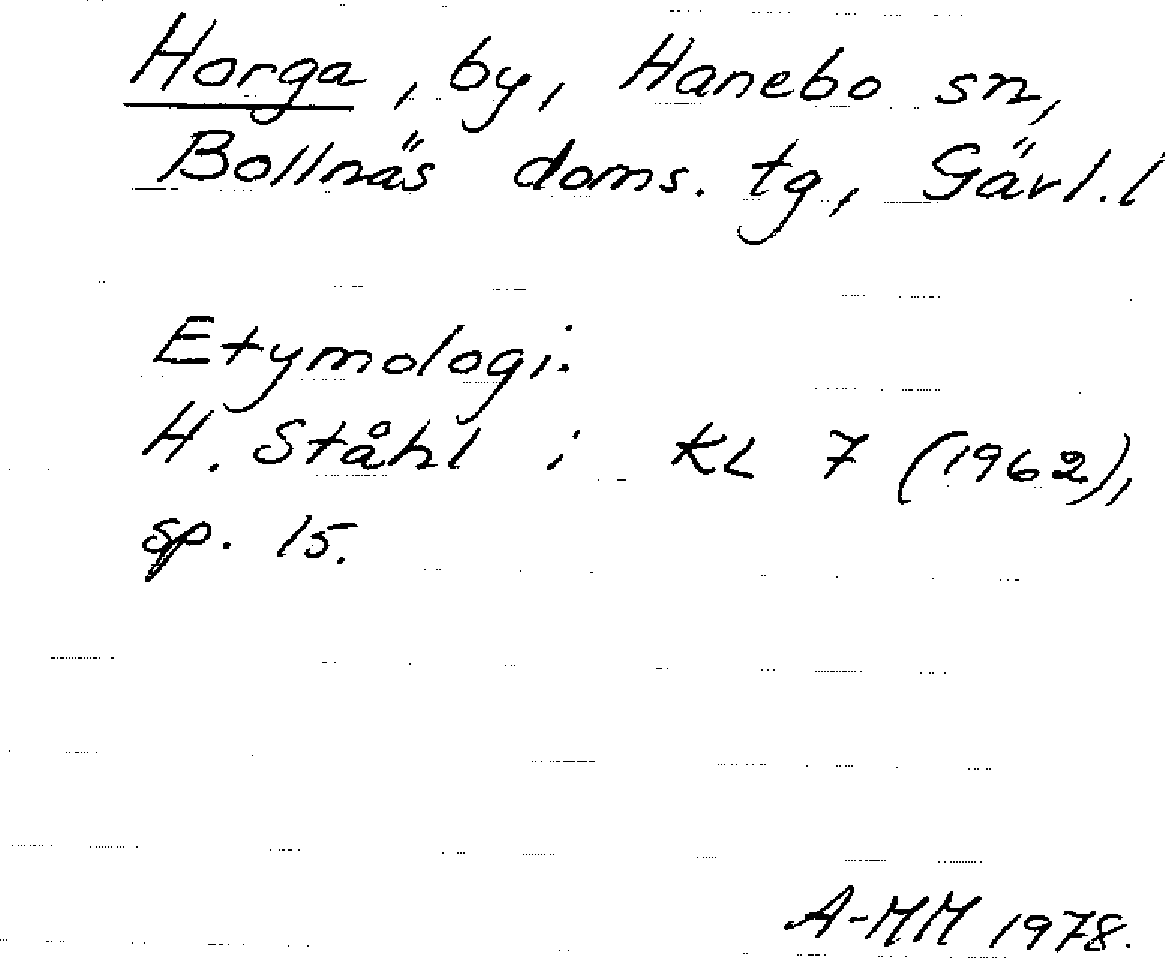 Horga, by, Hanebo sn,
Bollnäs doms. tg, Gävl. l
Etymologi.
H. Ståhl i KL 7 (1962),
sp. 15.
A-MM 1978.